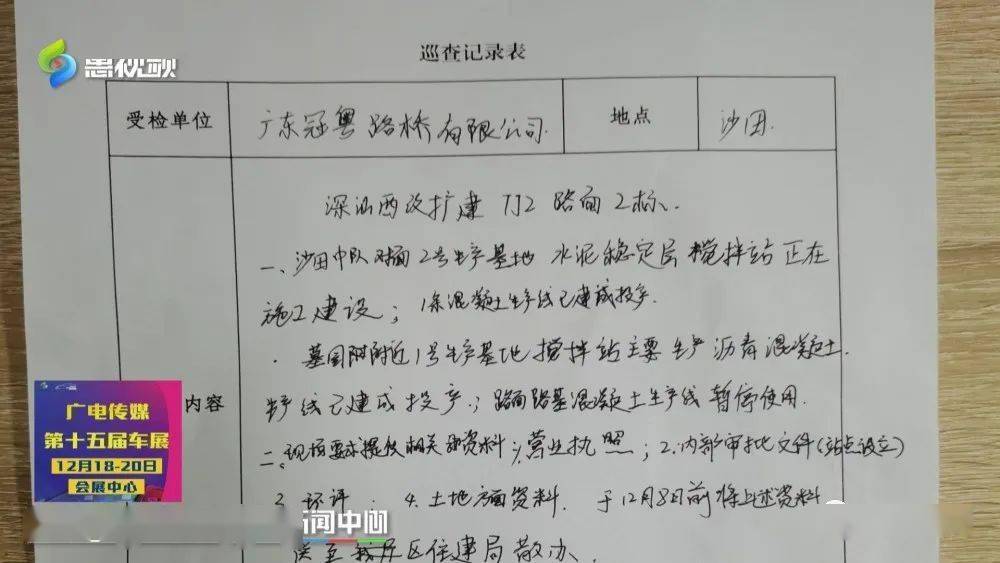 惠视频
巡查记录表
受检单位 广东冠粤路桥有限公司 地点 沙田
深汕西改扩建 TJ2 路面2标、
一、沙田中队对面2号生产基地 水泥稳定层搅拌站正在
施工建设；1条混凝土生产线已建成投产.
墓园附近1号生产基地搅拌站主要生产沥青混凝土
生产线已建成投产.；路面路基混凝土生产线暂停使用.
内容
二、现场要求提供相关资料 1.营业执照；2.内部审批文件(站点设立)
3. 环评 4. 土地方面资料. 于12月8日前将上述资料
送至我区住建局散办、
广电传媒
第十五届车展
12月18-20日
会展中心
新闻中心